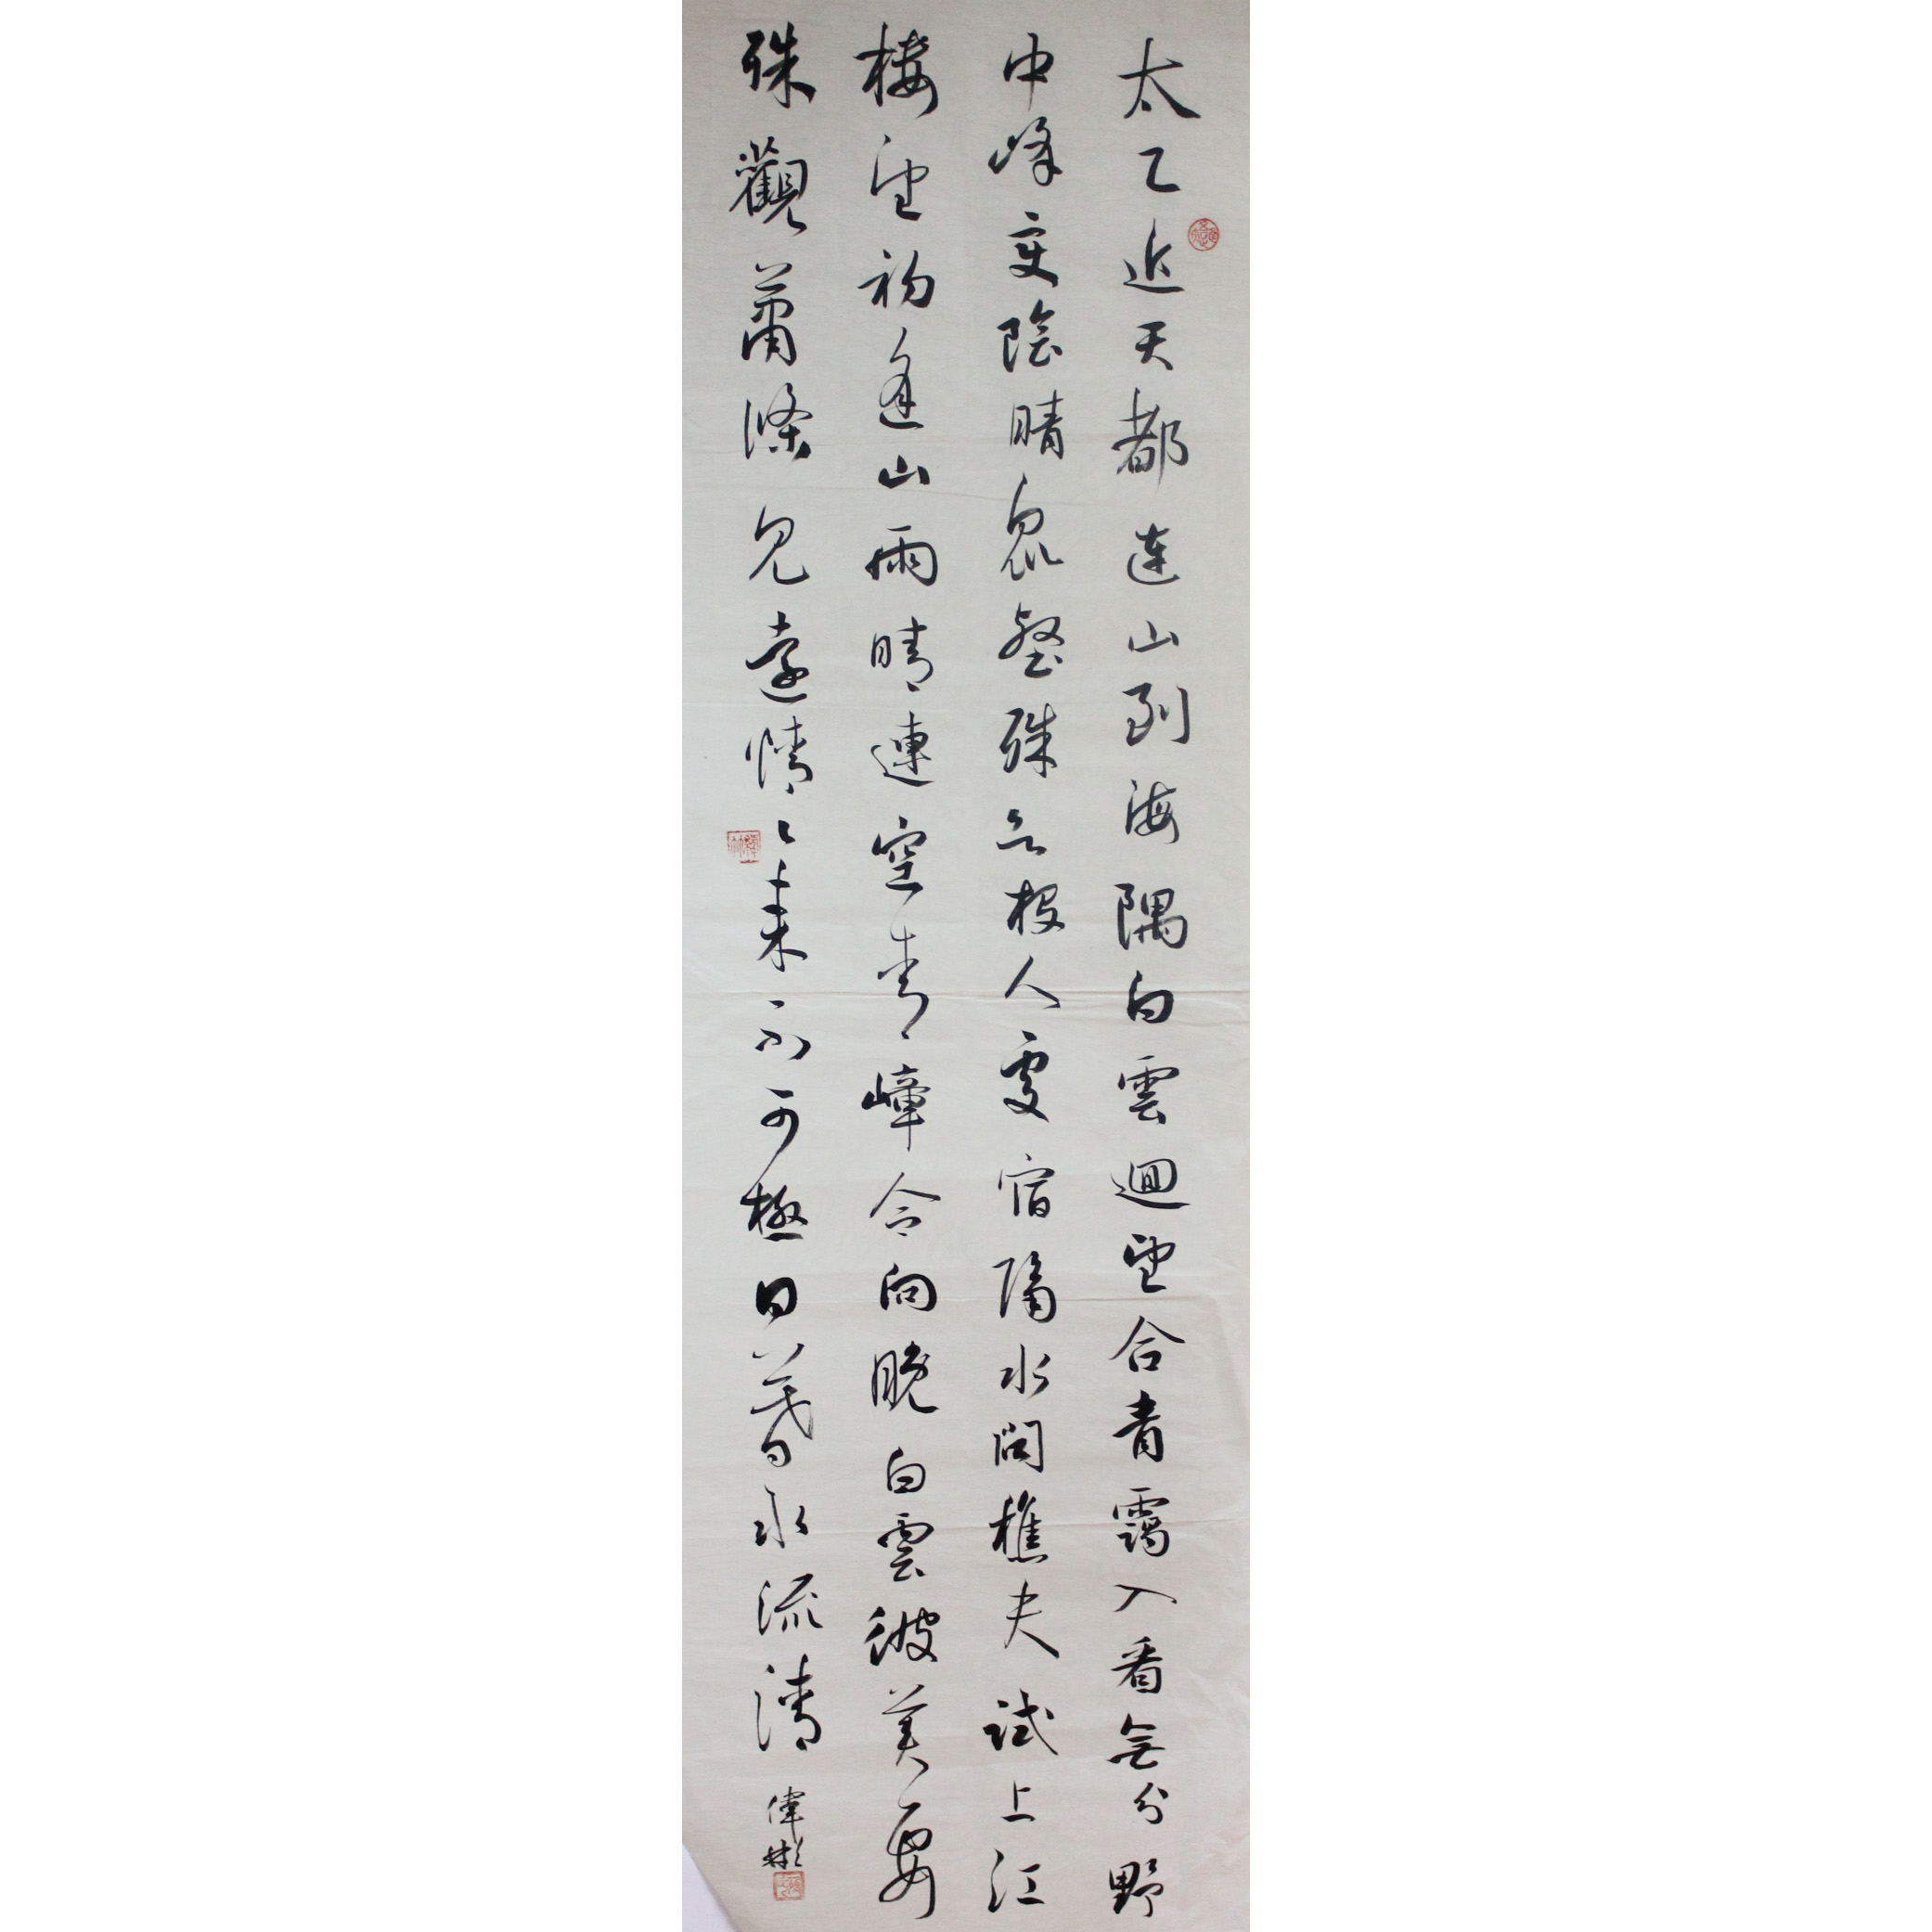 太乙近天都連山到海隅白雲迴望合青靄入看無分野
中峰變陰晴眾壑殊欲投人處宿隔水問樵夫試上江
樓望初逢山雨晴連空青嶂合向晚白雲彼美要
殊觀蕭條見遠情々來不可極日暮水流清
偉彬